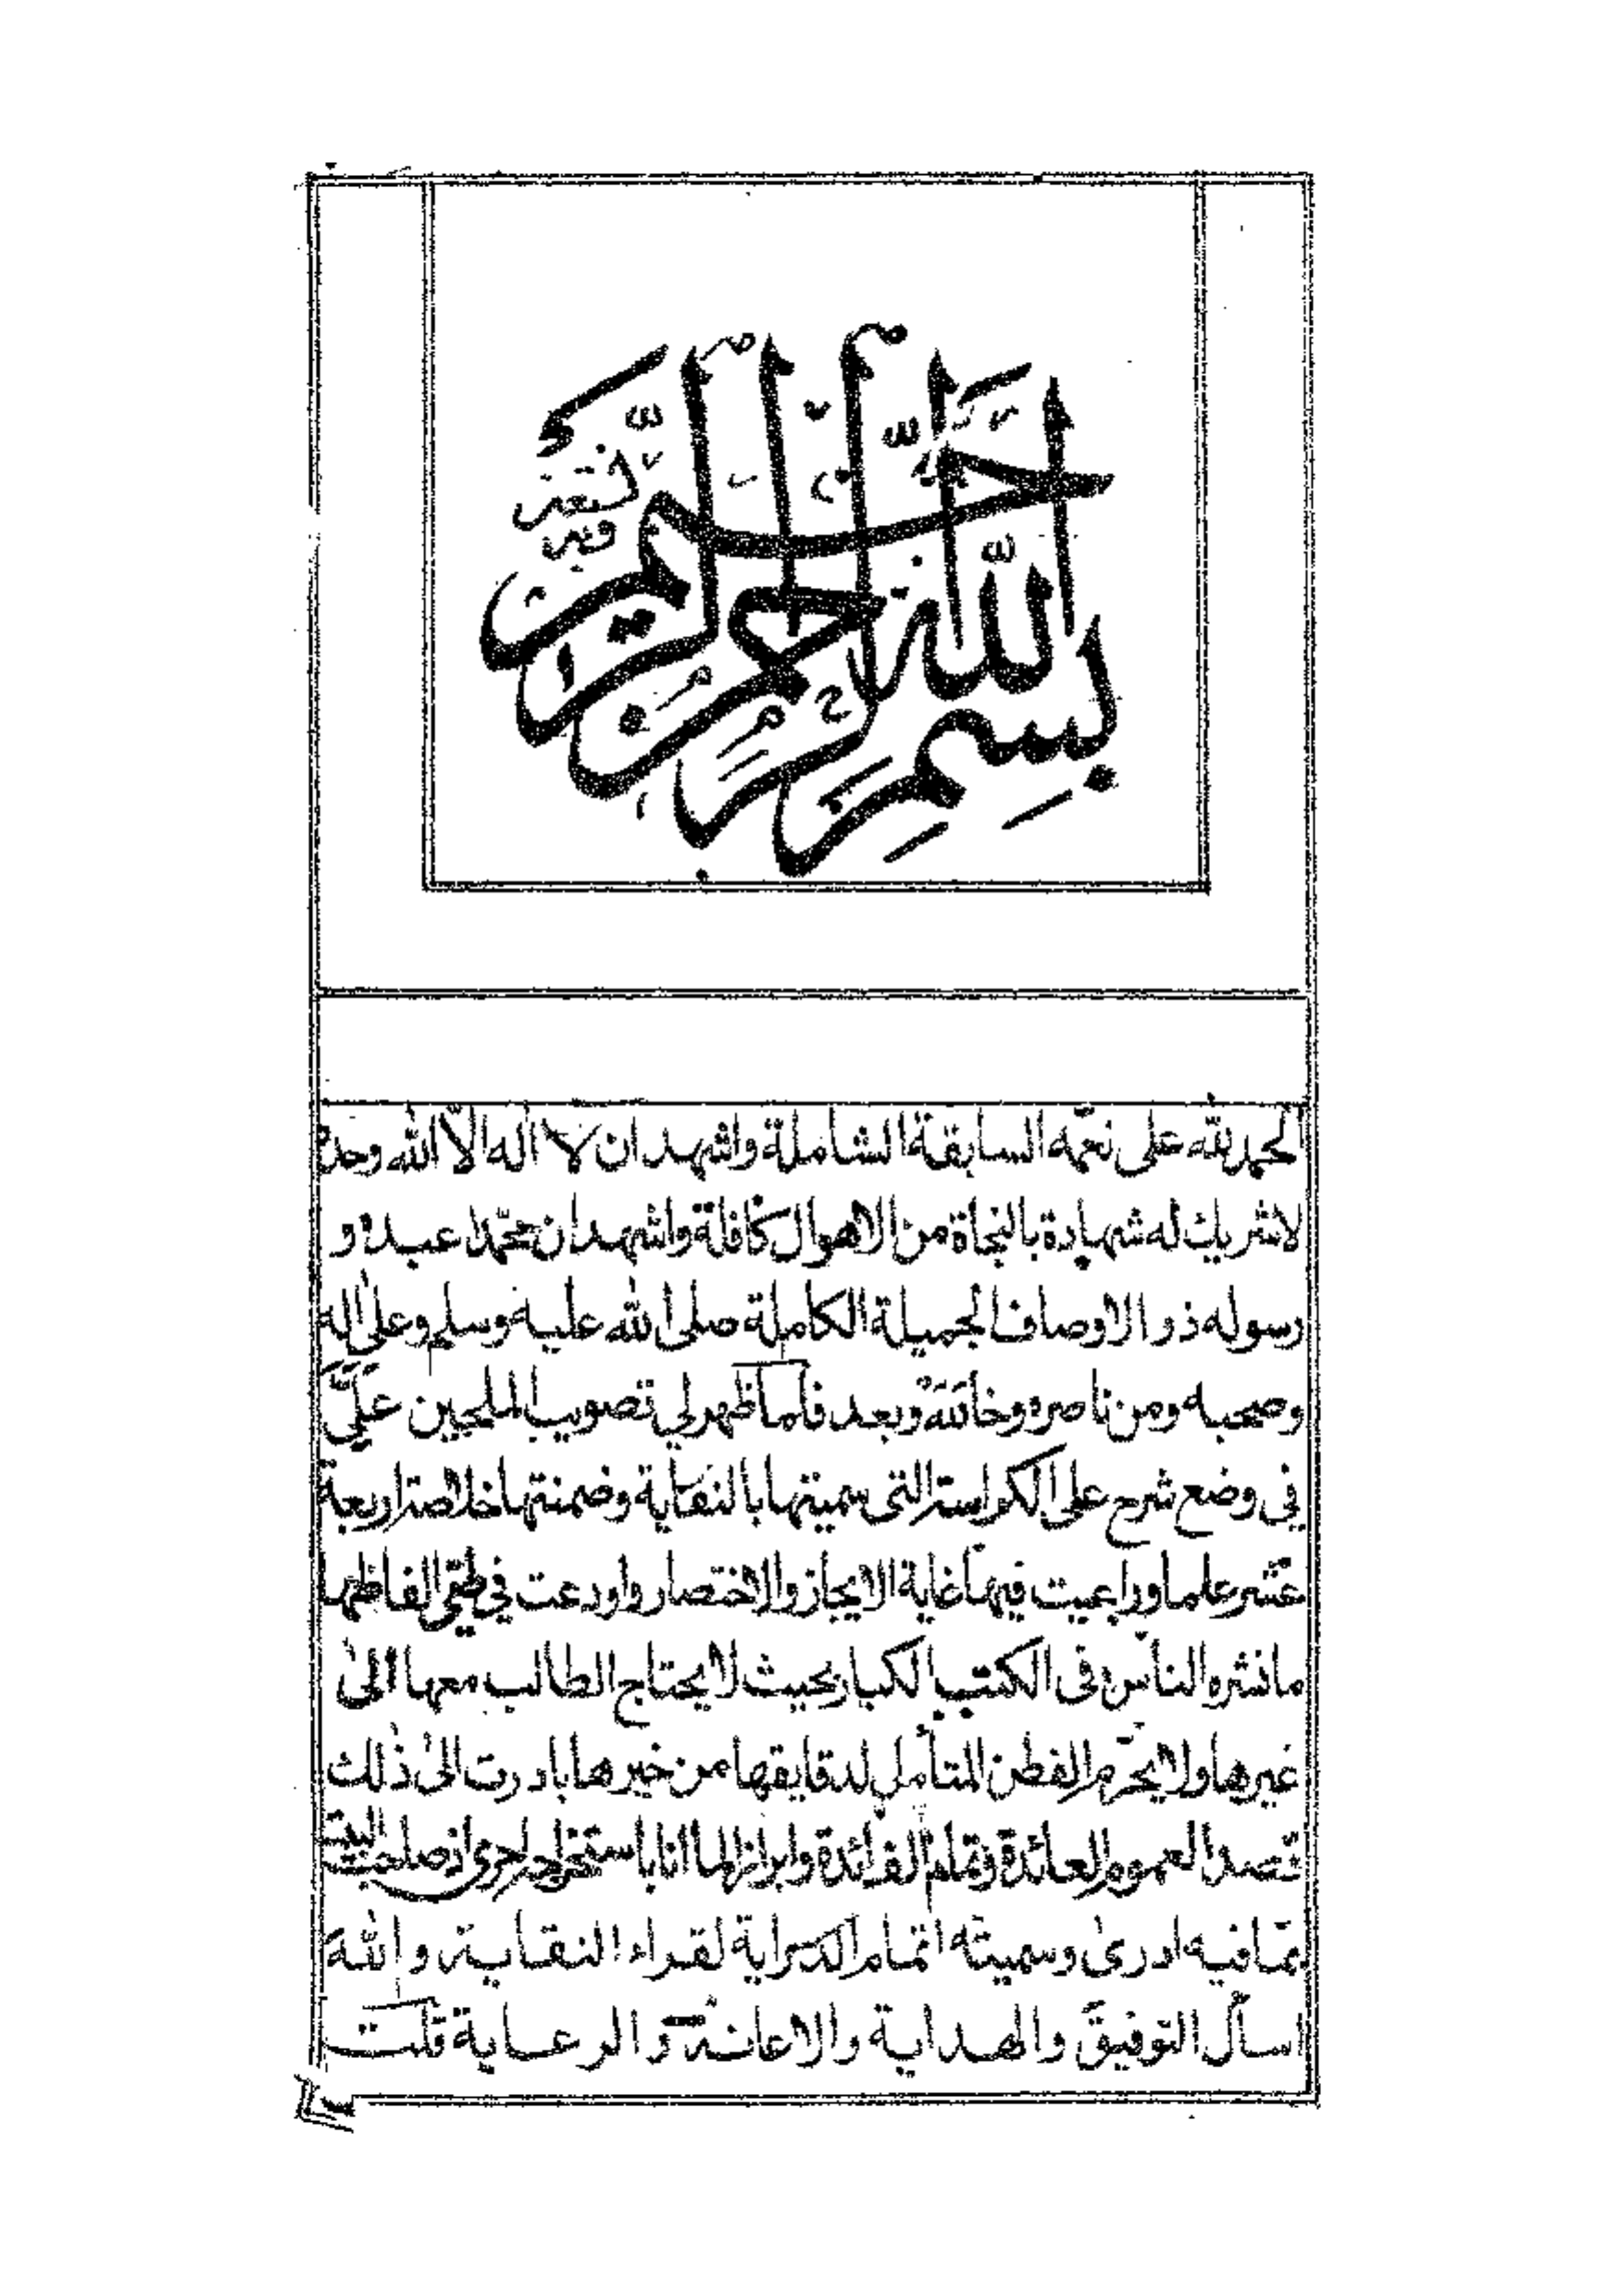 بسم الله الرحمن الرحيم
وبه نستعين
الحمد لله على نعمه السابقة الشاملة واشهد ان لا اله الا الله وحده
لا شريك له شهادة بالنجاة من الاهوال كافلة واشهد ان محمدا عبده و
رسوله ذو الاوصاف الجميلة الكاملة صلى الله عليه وسلم وعلى اله
وصحبه ومن ناصره وخالَلَهُ وبعد فلما ظهر لي تصويب الملحين عَلَيَّ
في وضع شرح على الكراسة التى سميتها بالنقاية وضمنتها خلاصة اربعة
عشر علما وراعيت فيها غاية الايجاز والاختصار واودعت في طى الفاظها
ما نشره الناس فى الكتب الكبار بحيث لا يحتاج الطالب معها الى
غيرها ولا يحرم الفطن المتأمل لدقايقها من خيرها بادرت الى ذلك
قصدا لعموم العائدة وتمام الفائدة وابرازا لما انا باستخراجه احرى اذ صاحب البيت
بما فيه ادرى وسميته اتمام الدراية لقراء النقاية والله
اسأل التوفيق والهداية والاعانة والرعاية قلت